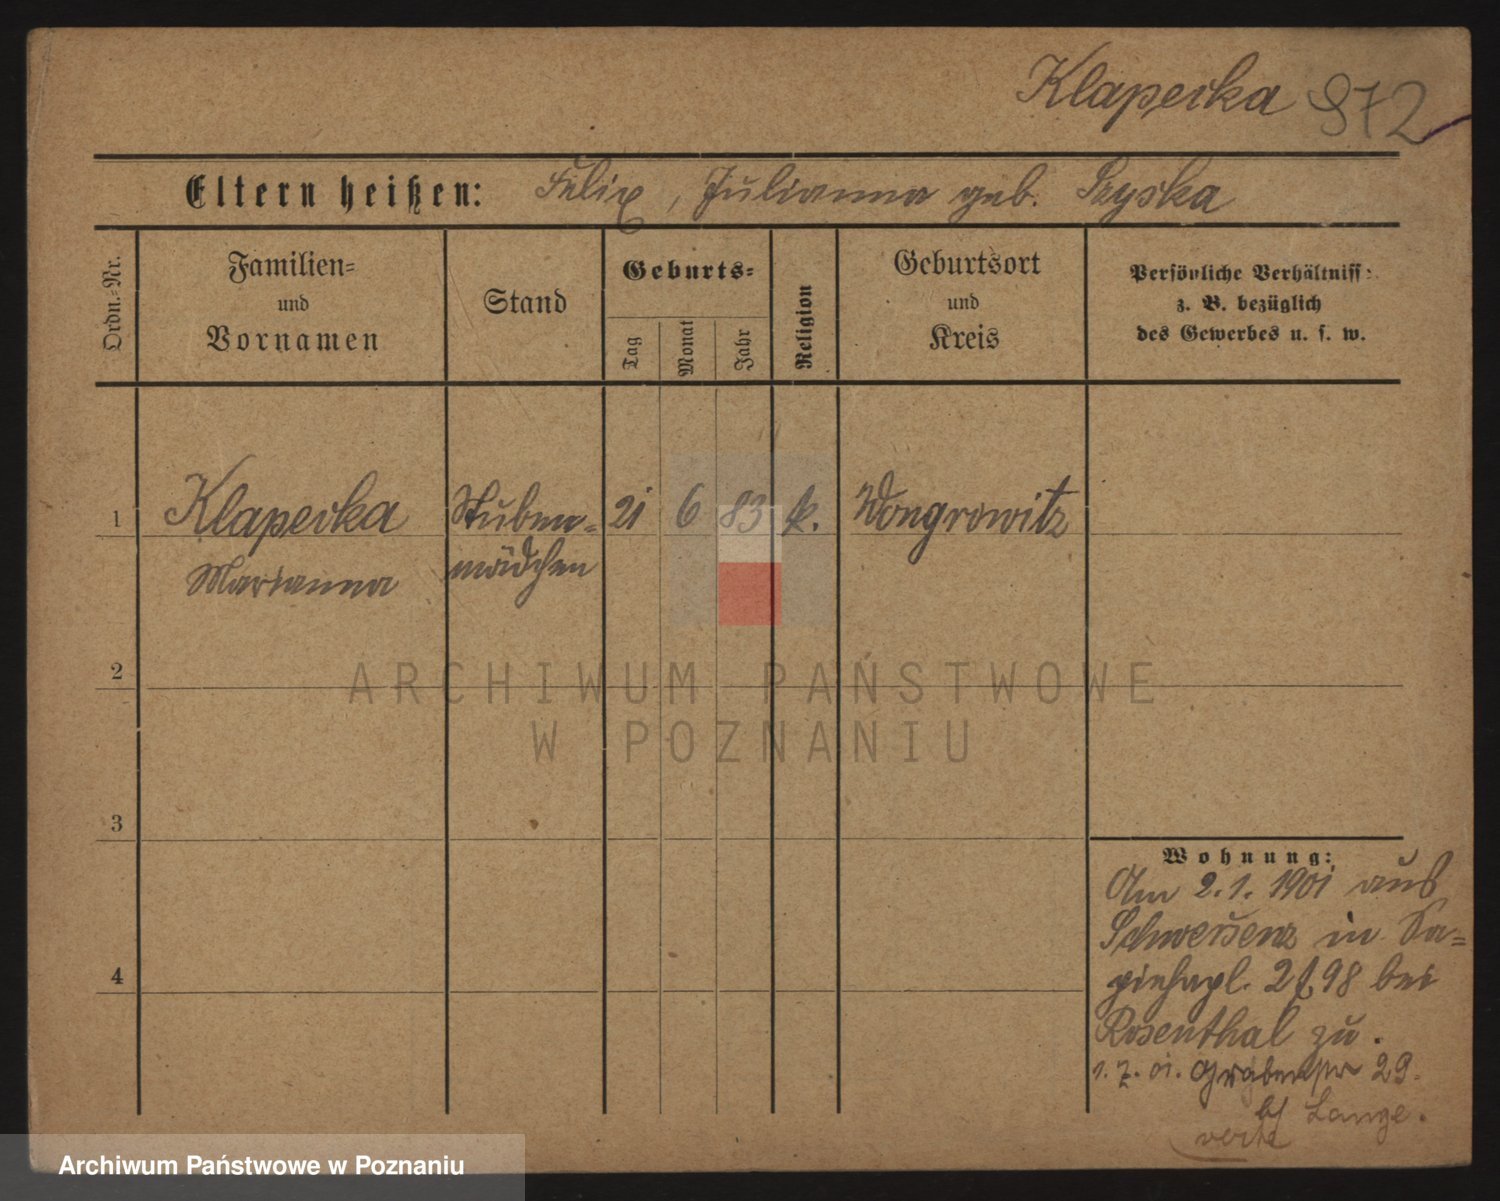 Klaperka 872
Eltern heißen: Felix, Julianna geb. Szyska
Ordn.-Nr.
Familien-
und
Vornamen
Stand
Geburts-
Tag
Monat
Jahr
Religion
Geburtsort
und
Kreis
Persönliche Verhältniss:
z. B. bezüglich
des Gewerbes u. s. w.
1 Klaperka Stuben- 21 6 83 k. Wongrowitz
Marianna mädchen
2
3
4
Wohnung:
Am 2.1.1901 aus
Schwersenz in Sa-
piehapl. 98 bei
Rosenthal zu.
1.7.01. Grabenstr 29.
b/ Lange.
verte
ARCHIWUM PAŃSTWOWE
W POZNANIU
Archiwum Państwowe w Poznaniu